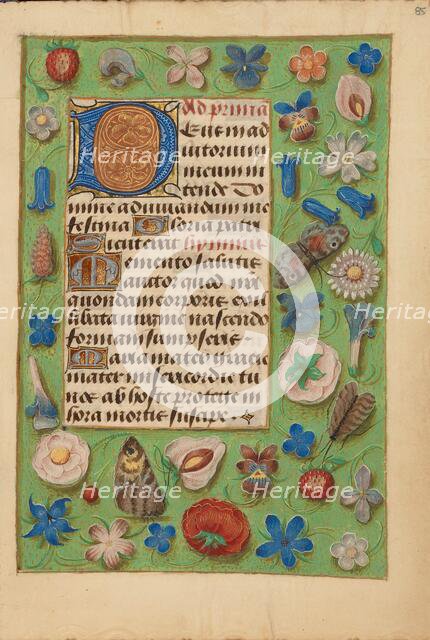 85
Ad prima
Deus in ad
iutorium
meum in
tende Do
mine ad iuuandum me
festina Gloria patri
Sicut erat hymnus
Memento salutis
auctor quod nri
quondam corporis ex il
libata uirgine nascendo
formam sumpseris
Maria mater gracie
mater misericordie tu
nos ab hoste protege in
hora mortis suscipe
Heritage
Heritage
Heritage
Heritage
Heritage
Heritage
Heritage
Heritage
Heritage